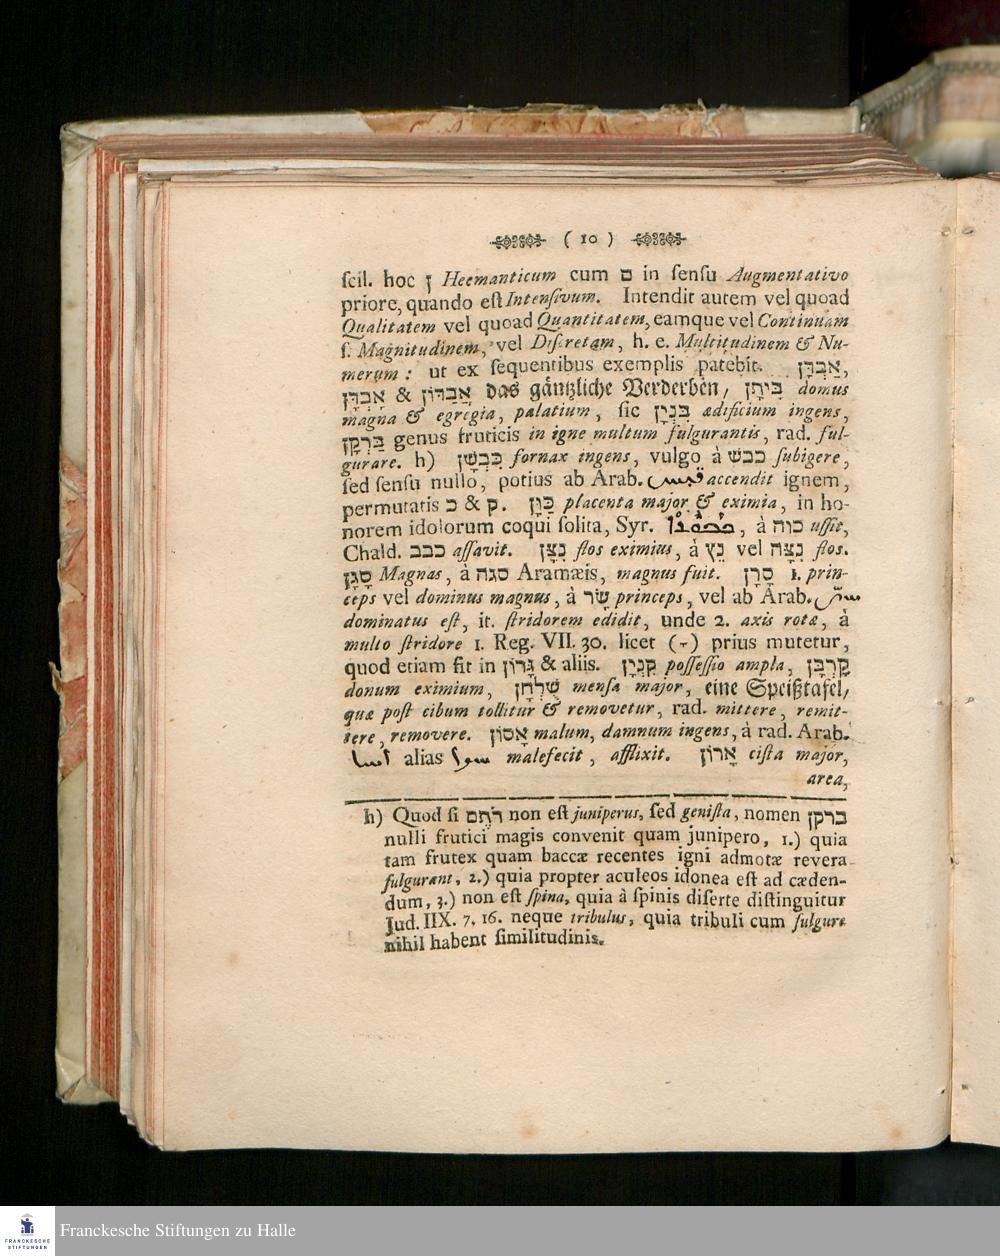 ( 10 )
ſcil. hoc ן Heemanticum cum ם in ſenſu Augmentativo
priore, quando eſt Intenſivum. Intendit autem vel quoad
Qualitatem vel quoad Quantitatem, eamque vel Continuam
ſ. Magnitudinem, vel Diſcretam, h. e. Multitudinem & Nu-
merum: ut ex ſequentibus exemplis patebit. אַבְדָּן,
אָבְדָן & אֲבַדּוֹן das gäntzliche Verderben, בִּיתָן domus
magna & egregia, palatium, ſic בִּנְיָן ædificium ingens,
בַּרְקָן genus fruticis in igne multum fulgurantis, rad. ful-
gurare. h) כִּבְשָׁן fornax ingens, vulgo à כבשׁ ſubigere,
ſed ſenſu nullo, potius ab Arab. قبس accendit ignem,
permutatis כ & ק. כַּוָּן placenta major & eximia, in ho-
norem idolorum coqui ſolita, Syr. , à כוה uſſit,
Chald. כבב aſſavit. נִצָּן flos eximius, à נֵץ vel נִצָּה flos.
סָגָן Magnas, à סגה Aramæis, magnus fuit. סָרָן 1. prin-
ceps vel dominus magnus, à שַׂר princeps, vel ab Arab.
dominatus eſt, it. ſtridorem edidit, unde 2. axis rotæ, à
multo ſtridore 1. Reg. VII. 30. licet (-) prius mutetur,
quod etiam fit in גָּרוֹן & aliis. קִנְיָן poſſeſſio ampla, קָרְבָּן
donum eximium, שֻׁלְחָן menſa major, eine Speißtafel,
quæ poſt cibum tollitur & removetur, rad. mittere, remit-
tere, removere. אָסוֹן malum, damnum ingens, à rad. Arab.
اسا alias سوا malefecit, afflixit. אָרוֹן ciſta major,
area,
h) Quod ſi רֹתֶם non eſt juniperus, ſed geniſta, nomen ברקן
nulli frutici magis convenit quam junipero, 1.) quia
tam frutex quam baccæ recentes igni admotæ revera
fulgurant, 2.) quia propter aculeos idonea eſt ad cæden-
dum, 3.) non eſt ſpina, quia à ſpinis diſerte diſtinguitur
Jud. IIX. 7. 16. neque tribulus, quia tribuli cum fulgure
nihil habent ſimilitudinis.
FRANCKESCHE
STIFTUNGEN
Franckesche Stiftungen zu Halle